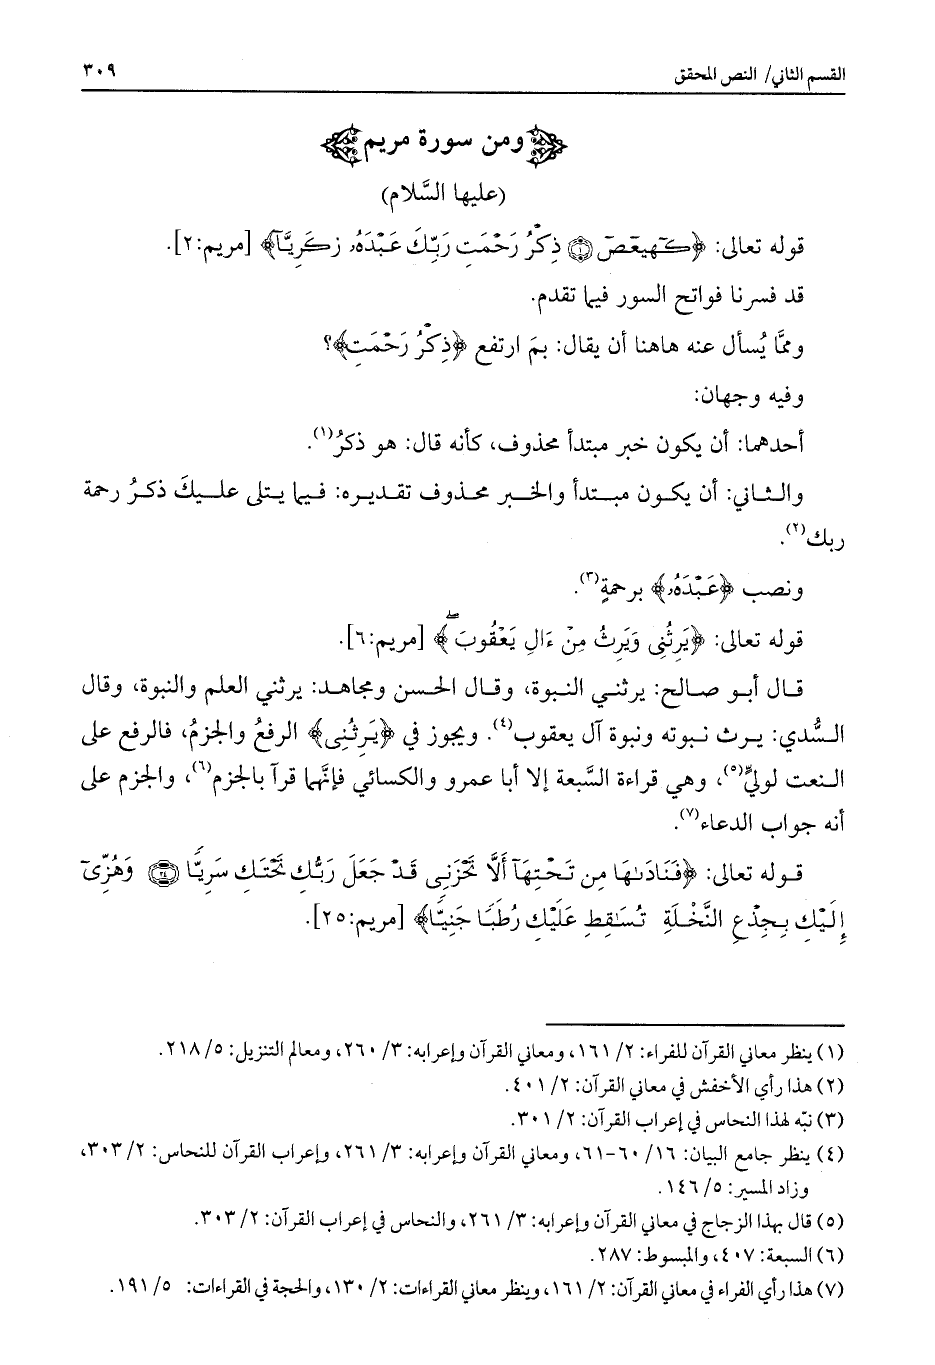 القسم الثاني/ النص المحقق ٣٠٩
ومن سورة مريم
(عليها السَّلام)
قوله تعالى: ﴿كٓهيعٓصٓ ۝١ ذِكۡرُ رَحۡمَتِ رَبِّكَ عَبۡدَهُۥ زَكَرِيَّآ﴾ [مريم:٢].
قد فسرنا فواتح السور فيما تقدم.
وممَّا يُسأل عنه هاهنا أن يقال: بمَ ارتفع ﴿ذِكۡرُ رَحۡمَتِ﴾؟
وفيه وجهان:
أحدهما: أن يكون خبر مبتدأ محذوف، كأنه قال: هو ذكرُ(١).
والثاني: أن يكون مبتدأ والخبر محذوف تقديره: فيما يتلى عليكَ ذكرُ رحمة
ربك(٢).
ونصب ﴿عَبۡدَهُۥ﴾ برحمةٍ(٣).
قوله تعالى: ﴿يَرِثُنِى وَيَرِثُ مِنۡ ءَالِ يَعۡقُوبَۖ﴾ [مريم:٦].
قال أبو صالح: يرثني النبوة، وقال الحسن ومجاهد: يرثني العلم والنبوة، وقال
السُّدي: يرث نبوته ونبوة آل يعقوب(٤). ويجوز في ﴿يَرِثُنِى﴾ الرفعُ والجزمُ، فالرفع على
النعت لوليٍّ(٥)، وهي قراءة السَّبعة إلا أبا عمرو والكسائي فإنَّهما قرآ بالجزم(٦)، والجزم على
أنه جواب الدعاء(٧).
قوله تعالى: ﴿فَنَادَىٰهَا مِن تَحۡتِهَآ أَلَّا تَحۡزَنِى قَدۡ جَعَلَ رَبُّكِ تَحۡتَكِ سَرِيّٗا ۝٢٤ وَهُزِّىٓ
إِلَيۡكِ بِجِذۡعِ النَّخۡلَةِ تُسَٰقِطۡ عَلَيۡكِ رُطَبٗا جَنِيّٗا﴾ [مريم:٢٥].
(١) ينظر معاني القرآن للفراء: ٢/ ١٦١، ومعاني القرآن وإعرابه: ٣/ ٢٦٠، ومعالم التنزيل: ٥/ ٢١٨.
(٢) هذا رأي الأخفش في معاني القرآن: ٢/ ٤٠١.
(٣) نبّه لهذا النحاس في إعراب القرآن: ٢/ ٣٠١.
(٤) ينظر جامع البيان: ١٦/ ٦٠-٦١، ومعاني القرآن وإعرابه: ٣/ ٢٦١، وإعراب القرآن للنحاس: ٢/ ٣٠٣،
وزاد المسير: ٥/ ١٤٦.
(٥) قال بهذا الزجاج في معاني القرآن وإعرابه: ٣/ ٢٦١، والنحاس في إعراب القرآن: ٢/ ٣٠٣.
(٦) السبعة: ٤٠٧، والمبسوط: ٢٨٧.
(٧) هذا رأي الفراء في معاني القرآن: ٢/ ١٦١، وينظر معاني القراءات: ٢/ ١٣٠، والحجة في القراءات: ٥/ ١٩١.